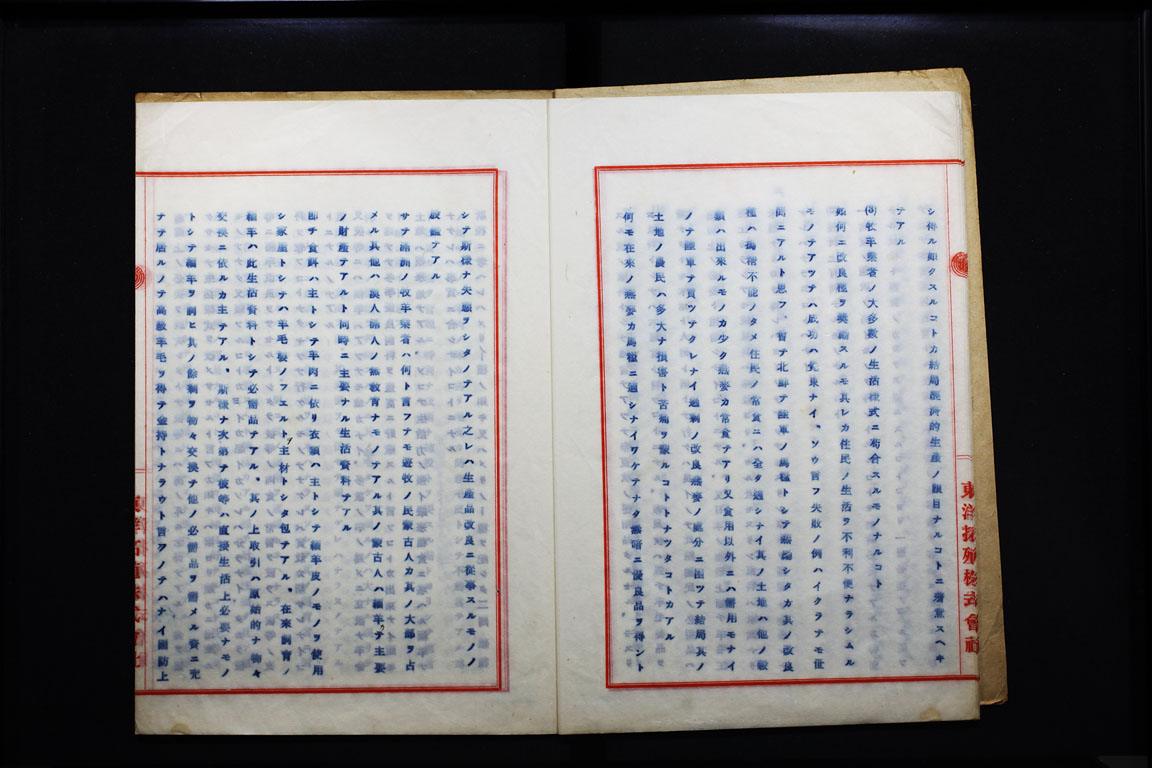 シ得ル如クスルコトカ結局経済的生産ノ眼目ナルコトニ着意スヘキ
テアル
(3)牧羊業者ノ大多数ノ生活様式ニ苟合スルモノナルコト
如何ニ改良種ヲ奨励スルモ其レカ住民ノ生活ヲ不利不便ナラシムル
モノテアツテハ成功ハ覚束ナイ、ソウ言フ失敗ノ例ハイクラテモ世
間ニアルト思フ、曾テ北鮮テ陸軍ノ馬糧トシテ燕麥シタカ其ノ改良
種ハ搗精不能ノタメ住民ノ常食ニハ全タ適シナイ其ノ土地ハ他ノ穀
類ハ出来ルモノカ少ク燕麥カ常食テアリ又食用以外ニハ需用モナイ
ノテ陸軍テ買ツテクレナイ過剰ノ改良燕麥ノ處分ニ困ツテ結局其ノ
土地ノ農民ハ多大ナ損害ト苦痛ヲ蒙ルコトナツタコトカアル
何モ在来ノ燕麥カ馬糧ニ適シナイワケテナク無暗ニ優良品ヲ得ント
東洋拓殖株式會社
シテ斯様ナ失態ヲシタノテアル之レハ生産品改良ニ従事スルモノノ
殷鑑テアル
サテ滿洲ノ牧羊業者ハ何ト言フテモ遊牧ノ民蒙古人カ其ノ大部ヲ占
メル其他ハ漢人婦人ノ無教育ナモノテアル其ノ蒙古人ハ緬羊カ主要
ノ財産テアルト同時ニ主要ナル生活資料テアル
即チ食餌ハ主トシテ羊肉ニ依リ衣類ハ主トシテ緬羊皮ノモノヲ使用
シ家屋トシテハ羊毛製ノフエルトヲ主材トシタ包テアル。在来飼育ノ
緬羊ハ此生活資料トシテ必需品テアル。其ノ上取引ハ原始的ナ物々
交換ニ依ルカ主テアル。斯様ナ次第テ彼等ハ直接生活上必要ナモノ
トシテ緬羊ヲ飼ヒ其ノ餘剰ヲ物々交換テ他ノ必需品ヲ需メル資ニ充
テテ居ルノテ高級羊毛ヲ得テ金持トナラウト言フノテハナイ國防上
東洋拓殖株式會社